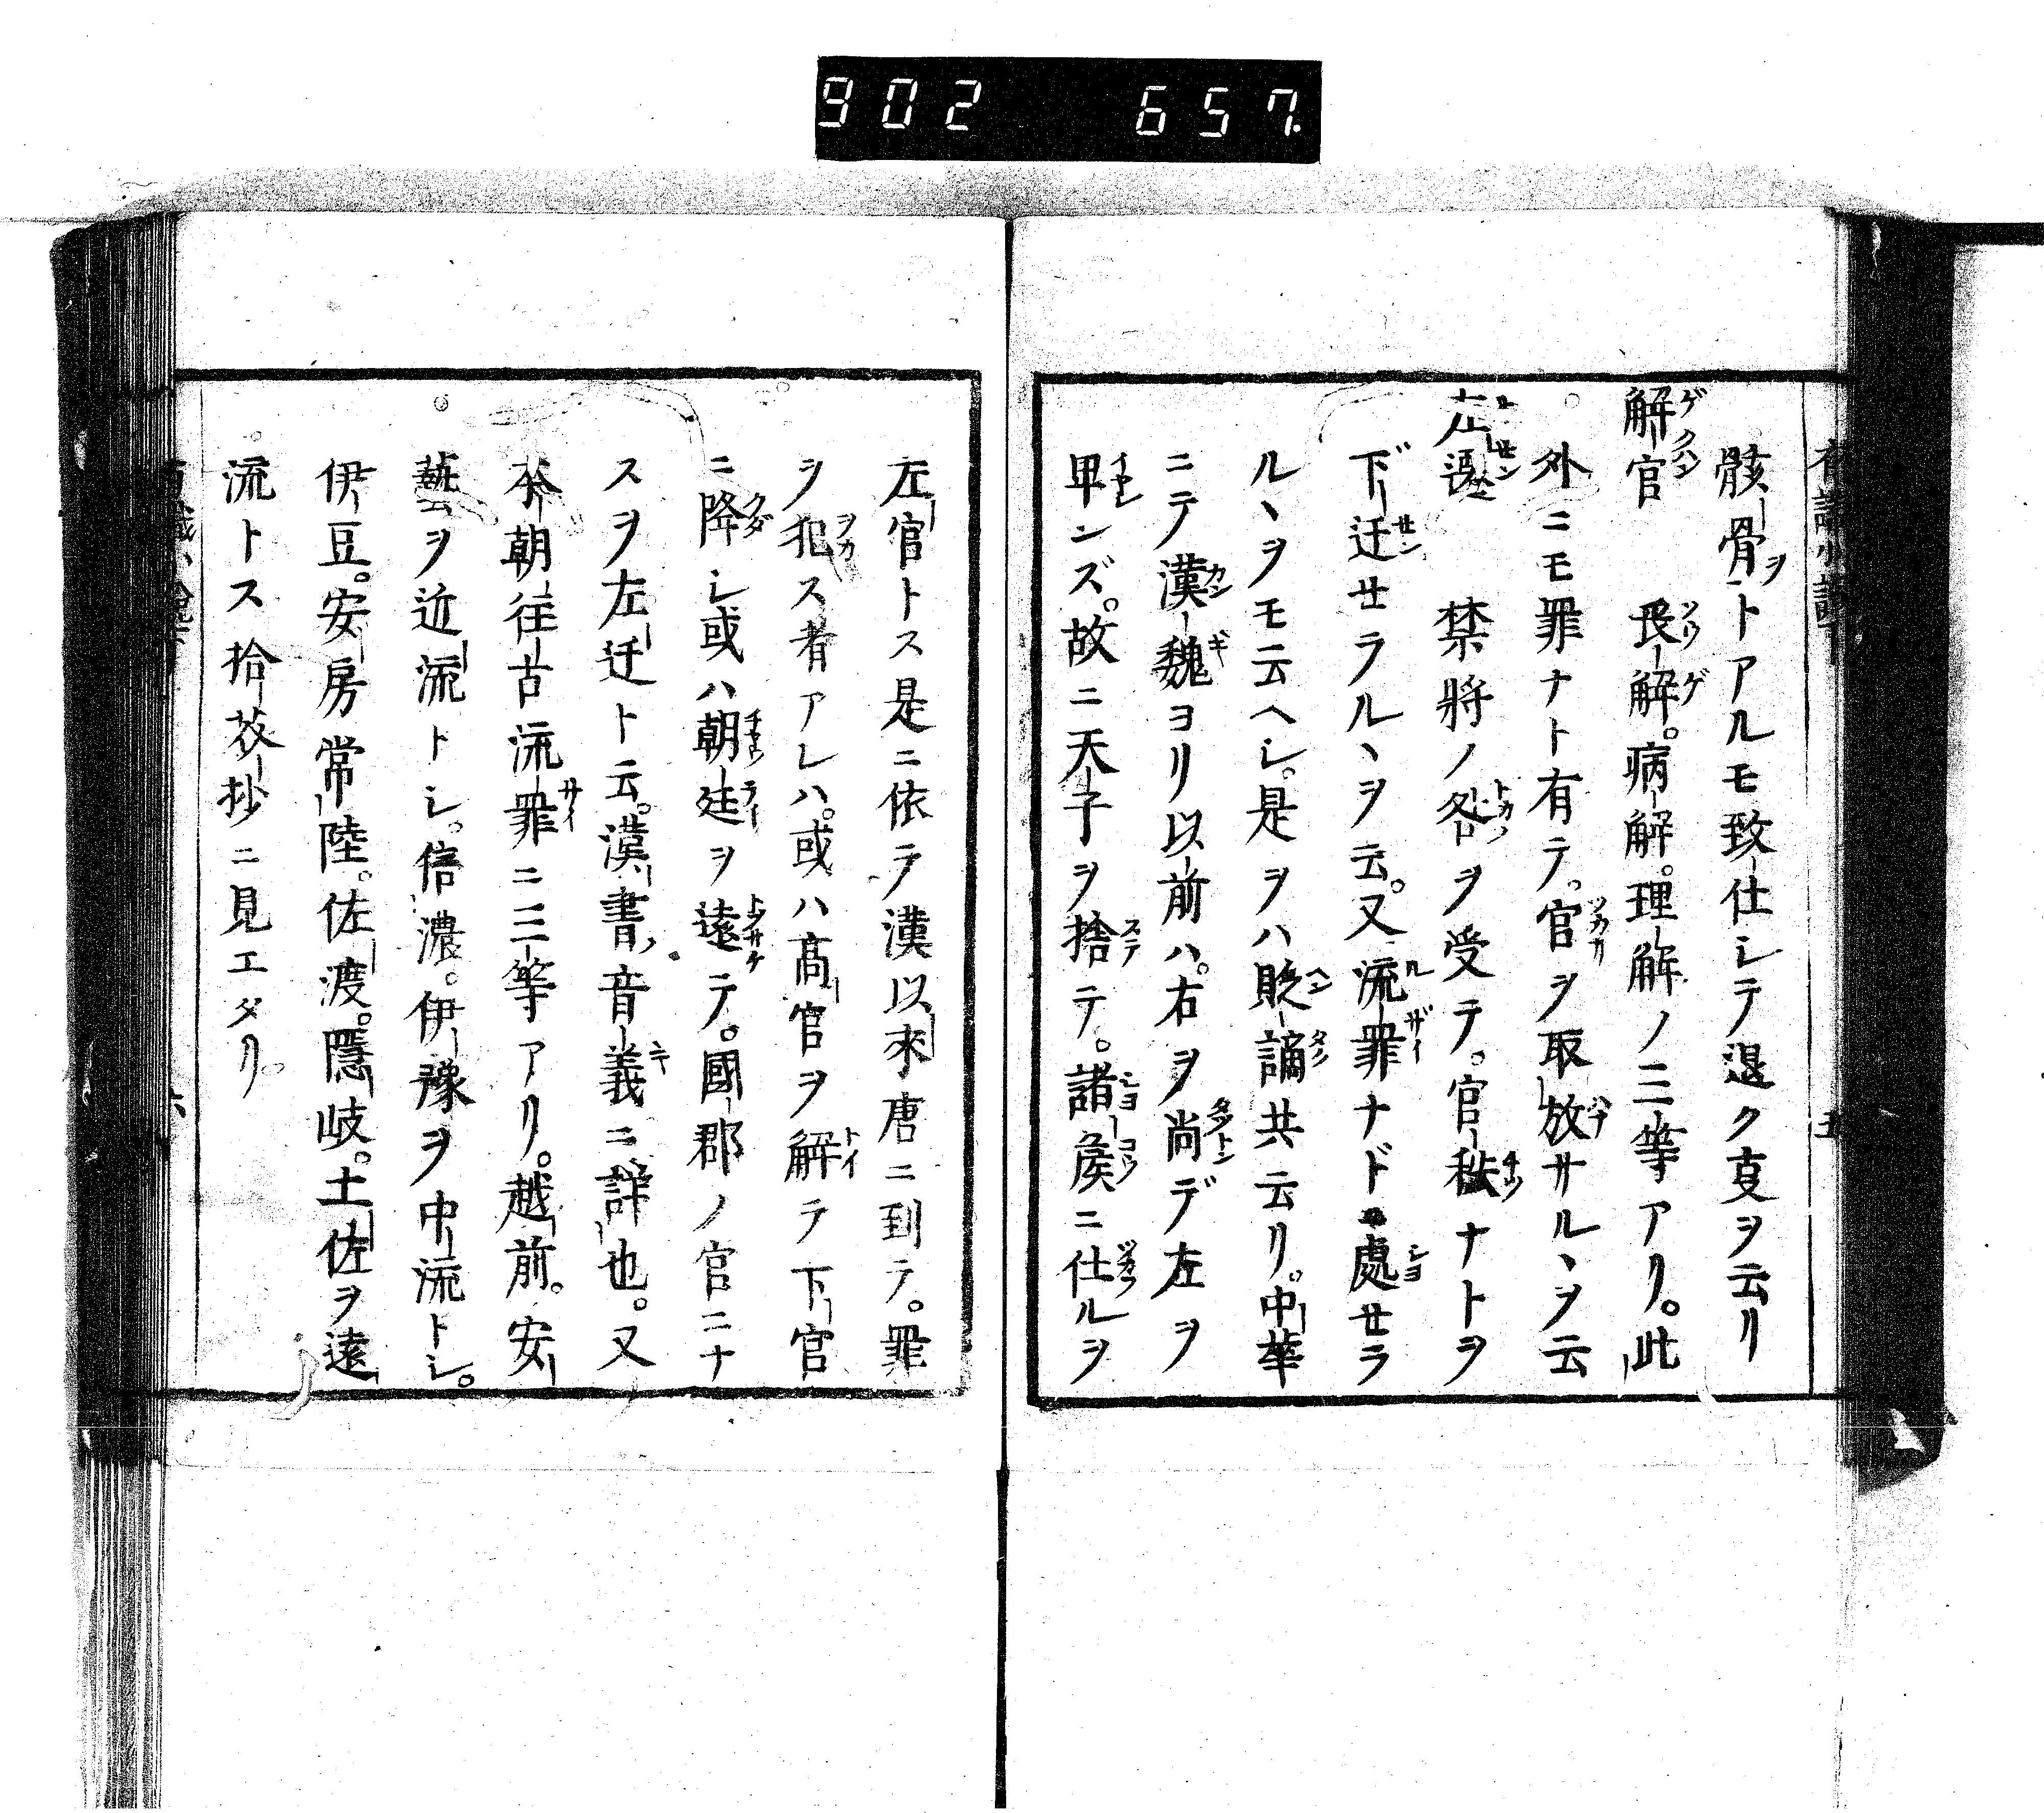 902 657
骸骨ヲトアルモ致仕シテ退ク支ヲ云リ
解官 喪解。病解。理解ノ三等アリ。此
外ニモ罪ナト有テ。官ヲ取放サルヽヲ云
左遷 禁將ノ咎ヲ受テ。官秩ナトヲ
下迁セラルヽヲ云。又流罪ナド處セラ
ルヽヲモ云ヘシ。是ヲハ貶謫共云リ。中華
ニテ漢魏ヨリ以前ハ。右ヲ尚デ左ヲ
卑ンズ。故ニ天子ヲ捨テ。諸矦ニ仕ルヲ
左官トス是ニ依テ漢以来唐ニ到テ。罪
ヲ犯ス者アレハ。或ハ髙官ヲ解テ下官
ニ降シ或ハ朝廷ヲ遠テ。國郡ノ官ニナ
スヲ左迁ト云。漢書ノ音義ニ詳也。又
本朝往古流罪ニ三等アリ。越前。安
藝ヲ近流トシ。信濃。伊豫ヲ中流トシ。
伊豆。安房常陸。佐渡。隠岐。土佐ヲ遠
流トス拾芥抄ニ見エタリ。